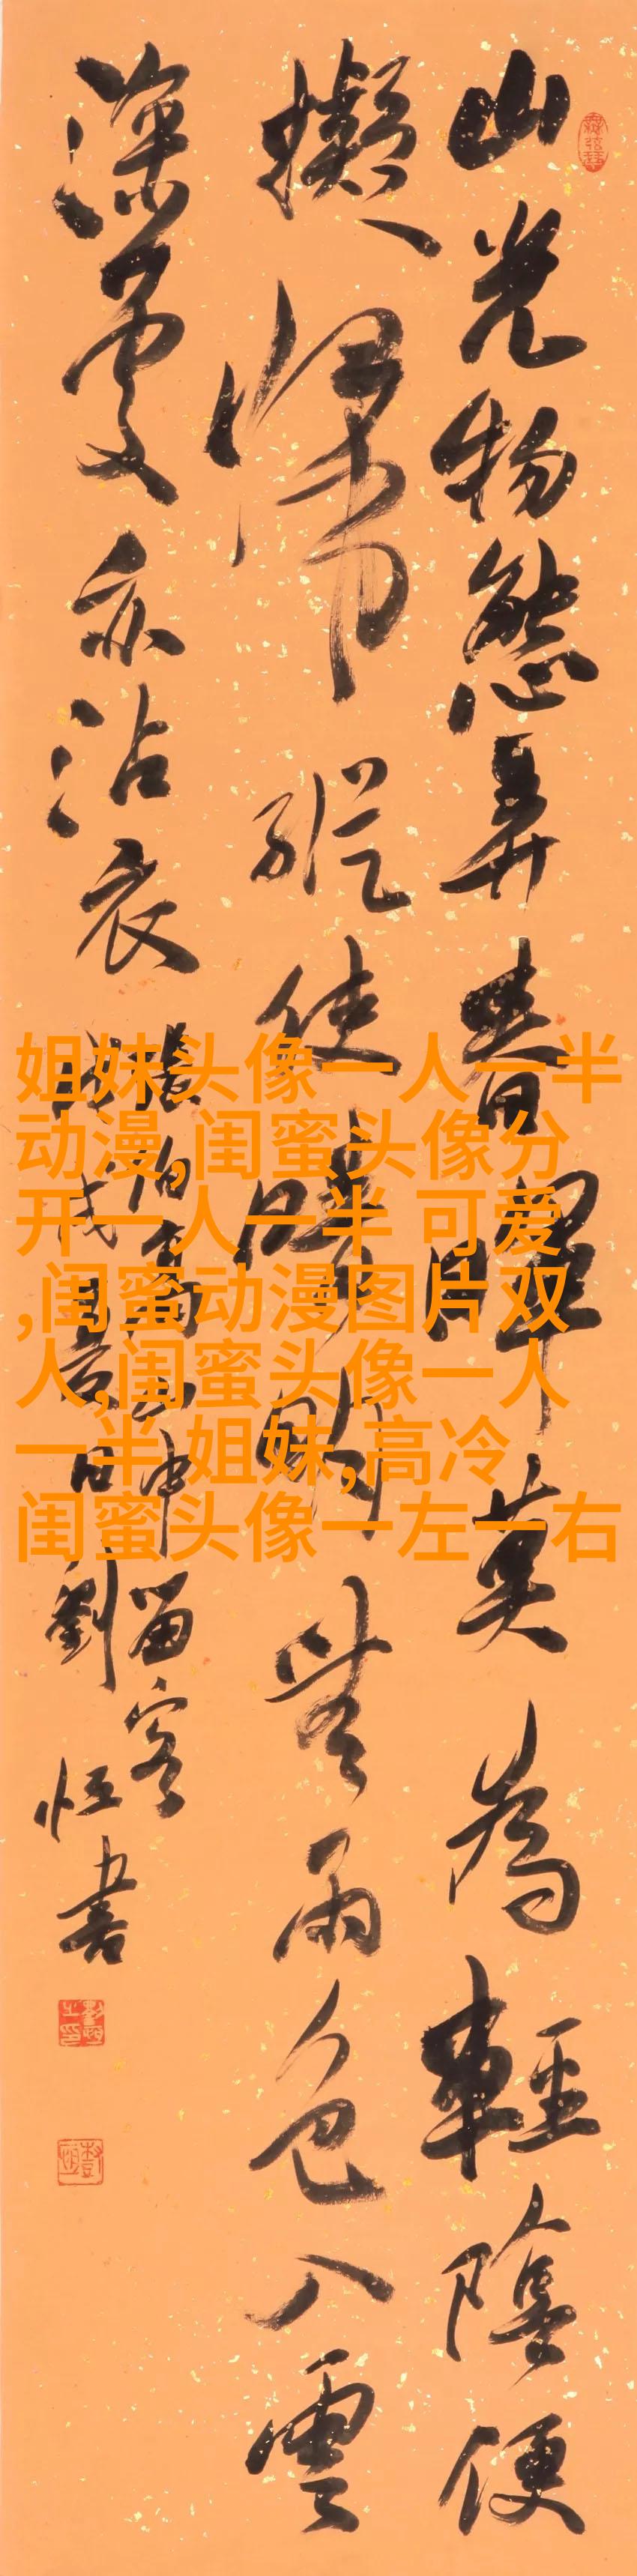 山光物態弄春暉莫為輕陰便
擬歸縱使晴明無雨色入雲
深處亦沾衣
張伯高山中留客
戊
日劉恒書
姐妹头像一人一半
动漫,闺蜜头像分
开一人一半 可爱
,闺蜜动漫图片双
人,闺蜜头像一人
一半 姐妹,高冷
闺蜜头像一左一右